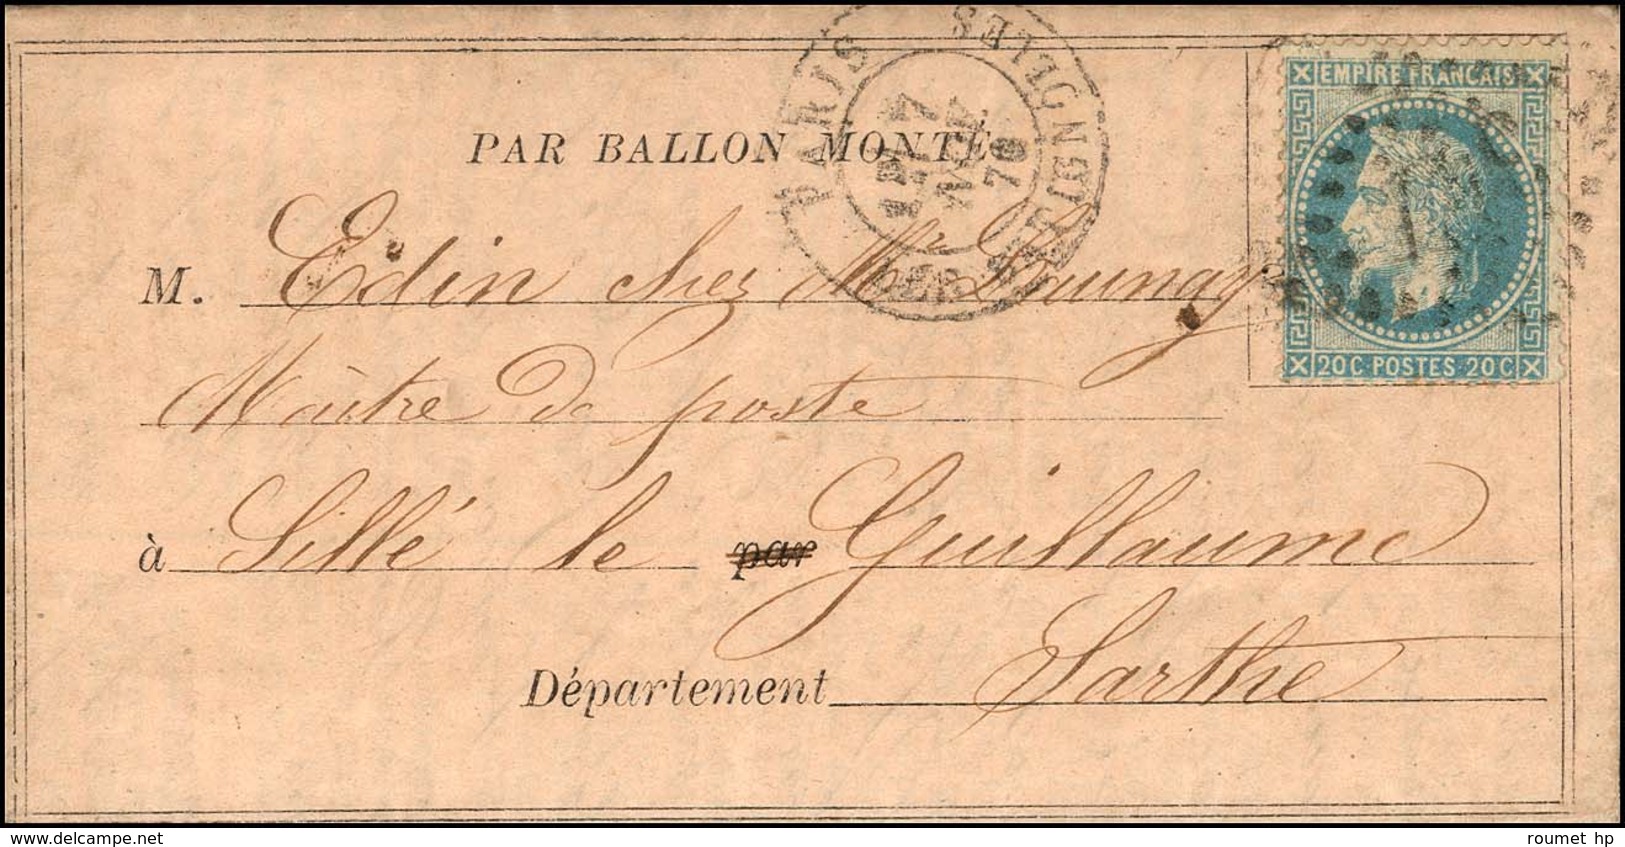 PAR BALLON MONTÉ
PARIS
SERPIGNY
70
EMPIRE FRANÇAIS
20 C POSTES 20 C
M. Edin chez Mr Launay
Maître de poste
à Sillé le par Guillaume
Département Sarthe
www.delcampe.net
roumet hp